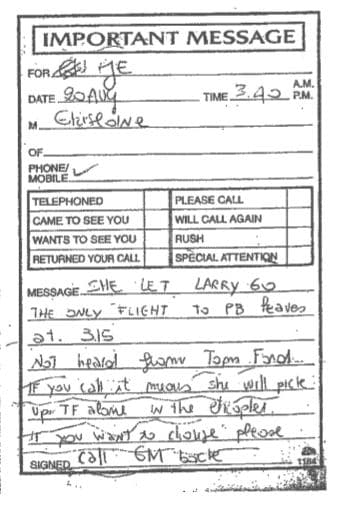 IMPORTANT MESSAGE
FOR JE
DATE 20 AUG TIME 3.40 A.M. P.M.
M
OF
PHONE/ MOBILE ✓
TELEPHONED PLEASE CALL
CAME TO SEE YOU WILL CALL AGAIN
WANTS TO SEE YOU RUSH
RETURNED YOUR CALL SPECIAL ATTENTION
MESSAGE SHE LET LARRY GO
THE ONLY FLIGHT TO PB leaves
at. 3.15
Not heard from Tom Ford..
IF you call it means she will pick
up TF alone in the
IF you want to change please
SIGNED call GM back
1184